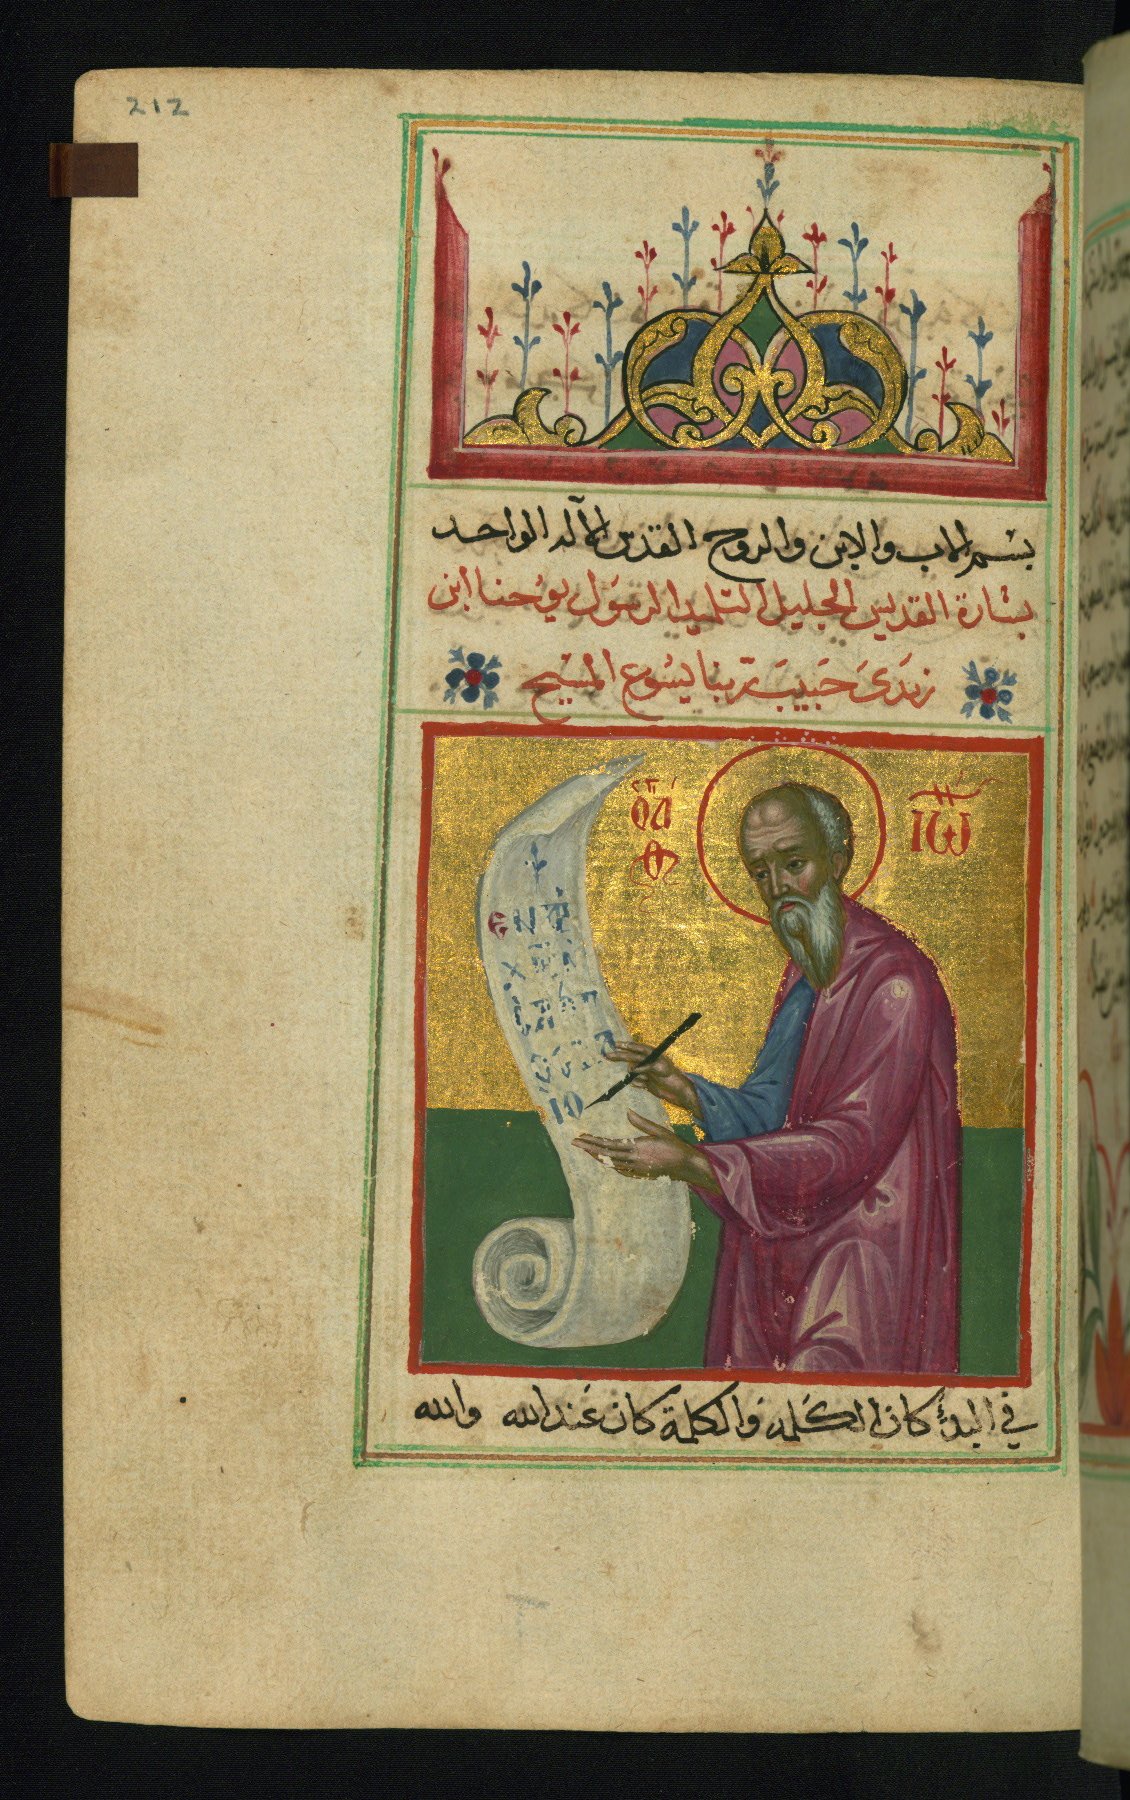 212
بسم الاب والابن والروح القدس الاله الواحد
بشارة القديس الجليل التلميذ الرسول يوحنا ابن
زبدى حبيب ربنا يسوع المسيح
ὁ ἅ
ΙΩ
في البدئ كان الكلمة والكلمة كان عند الله والله